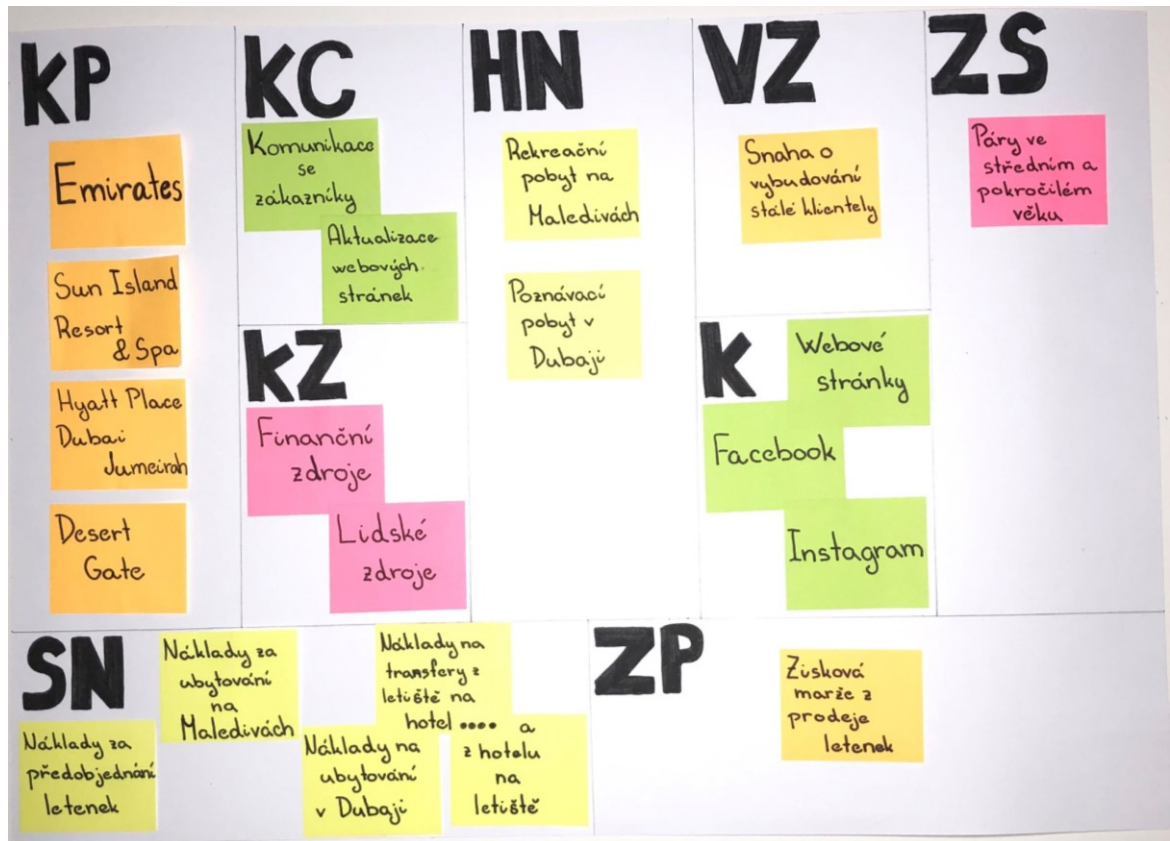 KP
Emirates
Sun Island
Resort
& Spa
Hyatt Place
Dubai
Jumeirah
Desert
Gate
KC
Komunikace
se
zákazníky
Aktualizace
webových
stránek
KZ
Finanční
zdroje
Lidské
zdroje
HN
Rekreační
pobyt na
Maledivách
Poznávací
pobyt v
Dubaji
VZ
Snaha o
vybudování
stálé klientely
K
Webové
stránky
Facebook
Instagram
ZS
Páry ve
středním a
pokročilém
věku
SN
Náklady za
předobjednání
letenek
Náklady za
ubytování
na
Maledivách
Náklady na
ubytování
v Dubaji
Náklady na
transfery z
letiště na
hotel .... a
z hotelu
na
letiště
ZP
Zisková
marže z
prodeje
letenek